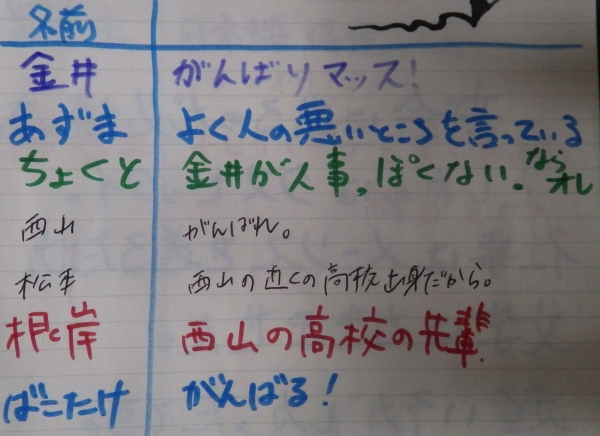 名前
金井 がんばりマッス!
あずま よく人の悪いところを言っている
ちょくと 金井が人事っぽくない。ならオレ
西山 がんばれ。
松本 西山の近くの高校出身だから。
根岸 西山の高校の先輩
ばこたけ がんばる!